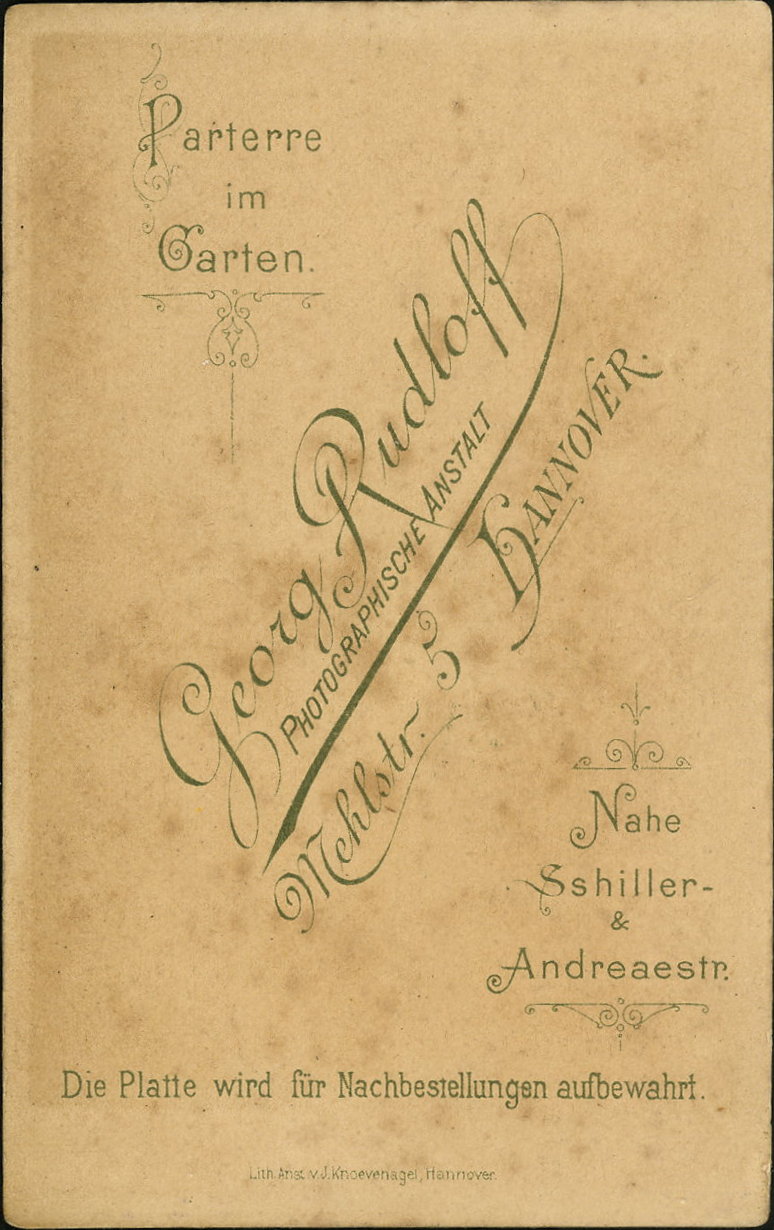 Parterre
im
Garten.
Georg Rudloff
PHOTOGRAPHISCHE ANSTALT
Mehlstr. 5 HANNOVER.
Nahe
Sshiller-
&
Andreaestr.
Die Platte wird für Nachbestellungen aufbewahrt.
Lith. Anst. v. J. Knoevenagel, Hannover.